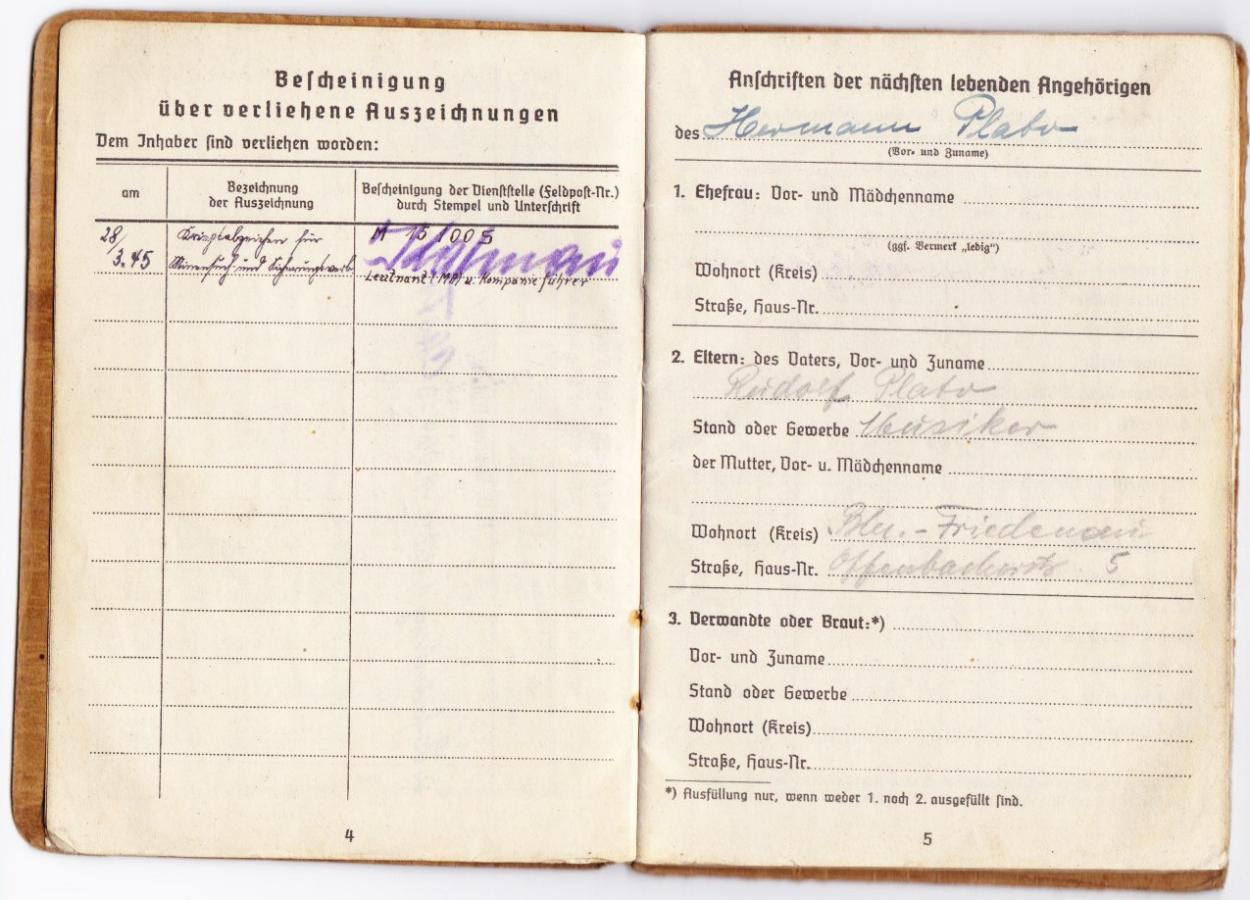 Bescheinigung
über verliehene Auszeichnungen
Dem Inhaber sind verliehen worden:
am
Bezeichnung
der Auszeichnung
Bescheinigung der Dienststelle (Feldpost-Nr.)
durch Stempel und Unterschrift
28/
3.45
für
Minensuch- und Sicherungsverb.
M 15 005
Leutnant (MA) u. Kompanieführer
4
Anschriften der nächsten lebenden Angehörigen
des Hermann Plato
(Vor- und Zuname)
1. Ehefrau: Vor- und Mädchenname
(ggf. Vermerk „ledig“)
Wohnort (Kreis)
Straße, Haus-Nr.
2. Eltern: des Vaters, Vor- und Zuname
Rudolf Plato
Stand oder Gewerbe Musiker
der Mutter, Vor- u. Mädchenname
Wohnort (Kreis) Bln.-Friedenau
Straße, Haus-Nr. Offenbacherstr. 5
3. Verwandte oder Braut:*)
Vor- und Zuname
Stand oder Gewerbe
Wohnort (Kreis)
Straße, Haus-Nr.
*) Ausfüllung nur, wenn weder 1. noch 2. ausgefüllt sind.
5